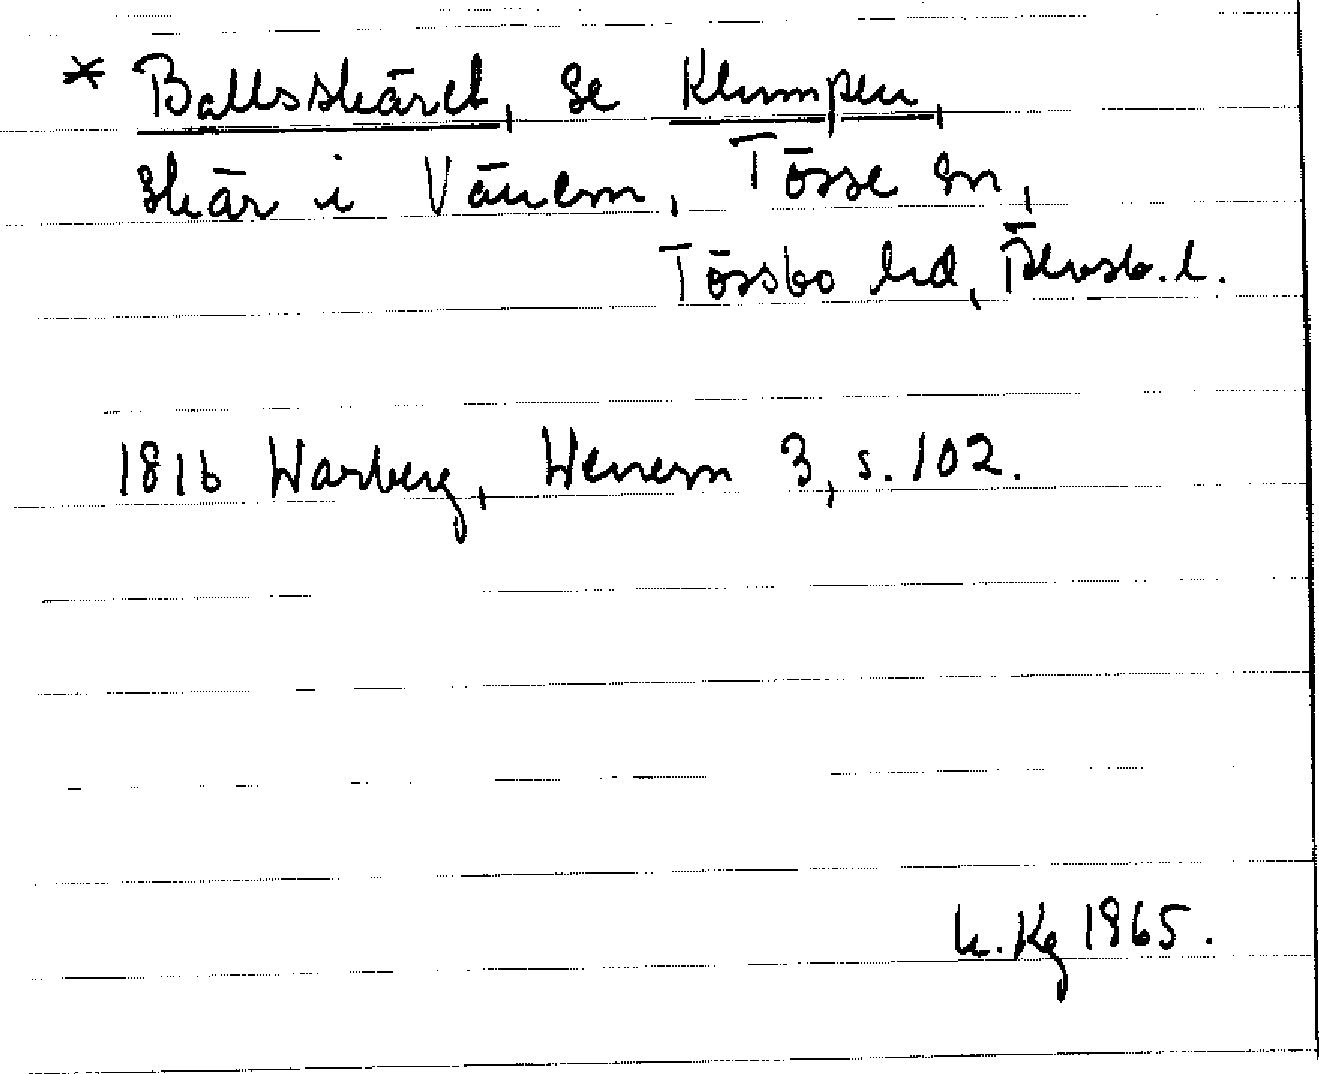 * Ballsskäret, se Klumpen,
skär i Vänern, Tösse sn,
Tössbo hd, Älvsb. l.
1816 Warberg, Wenern 3, s. 102.
K. Kg 1965.